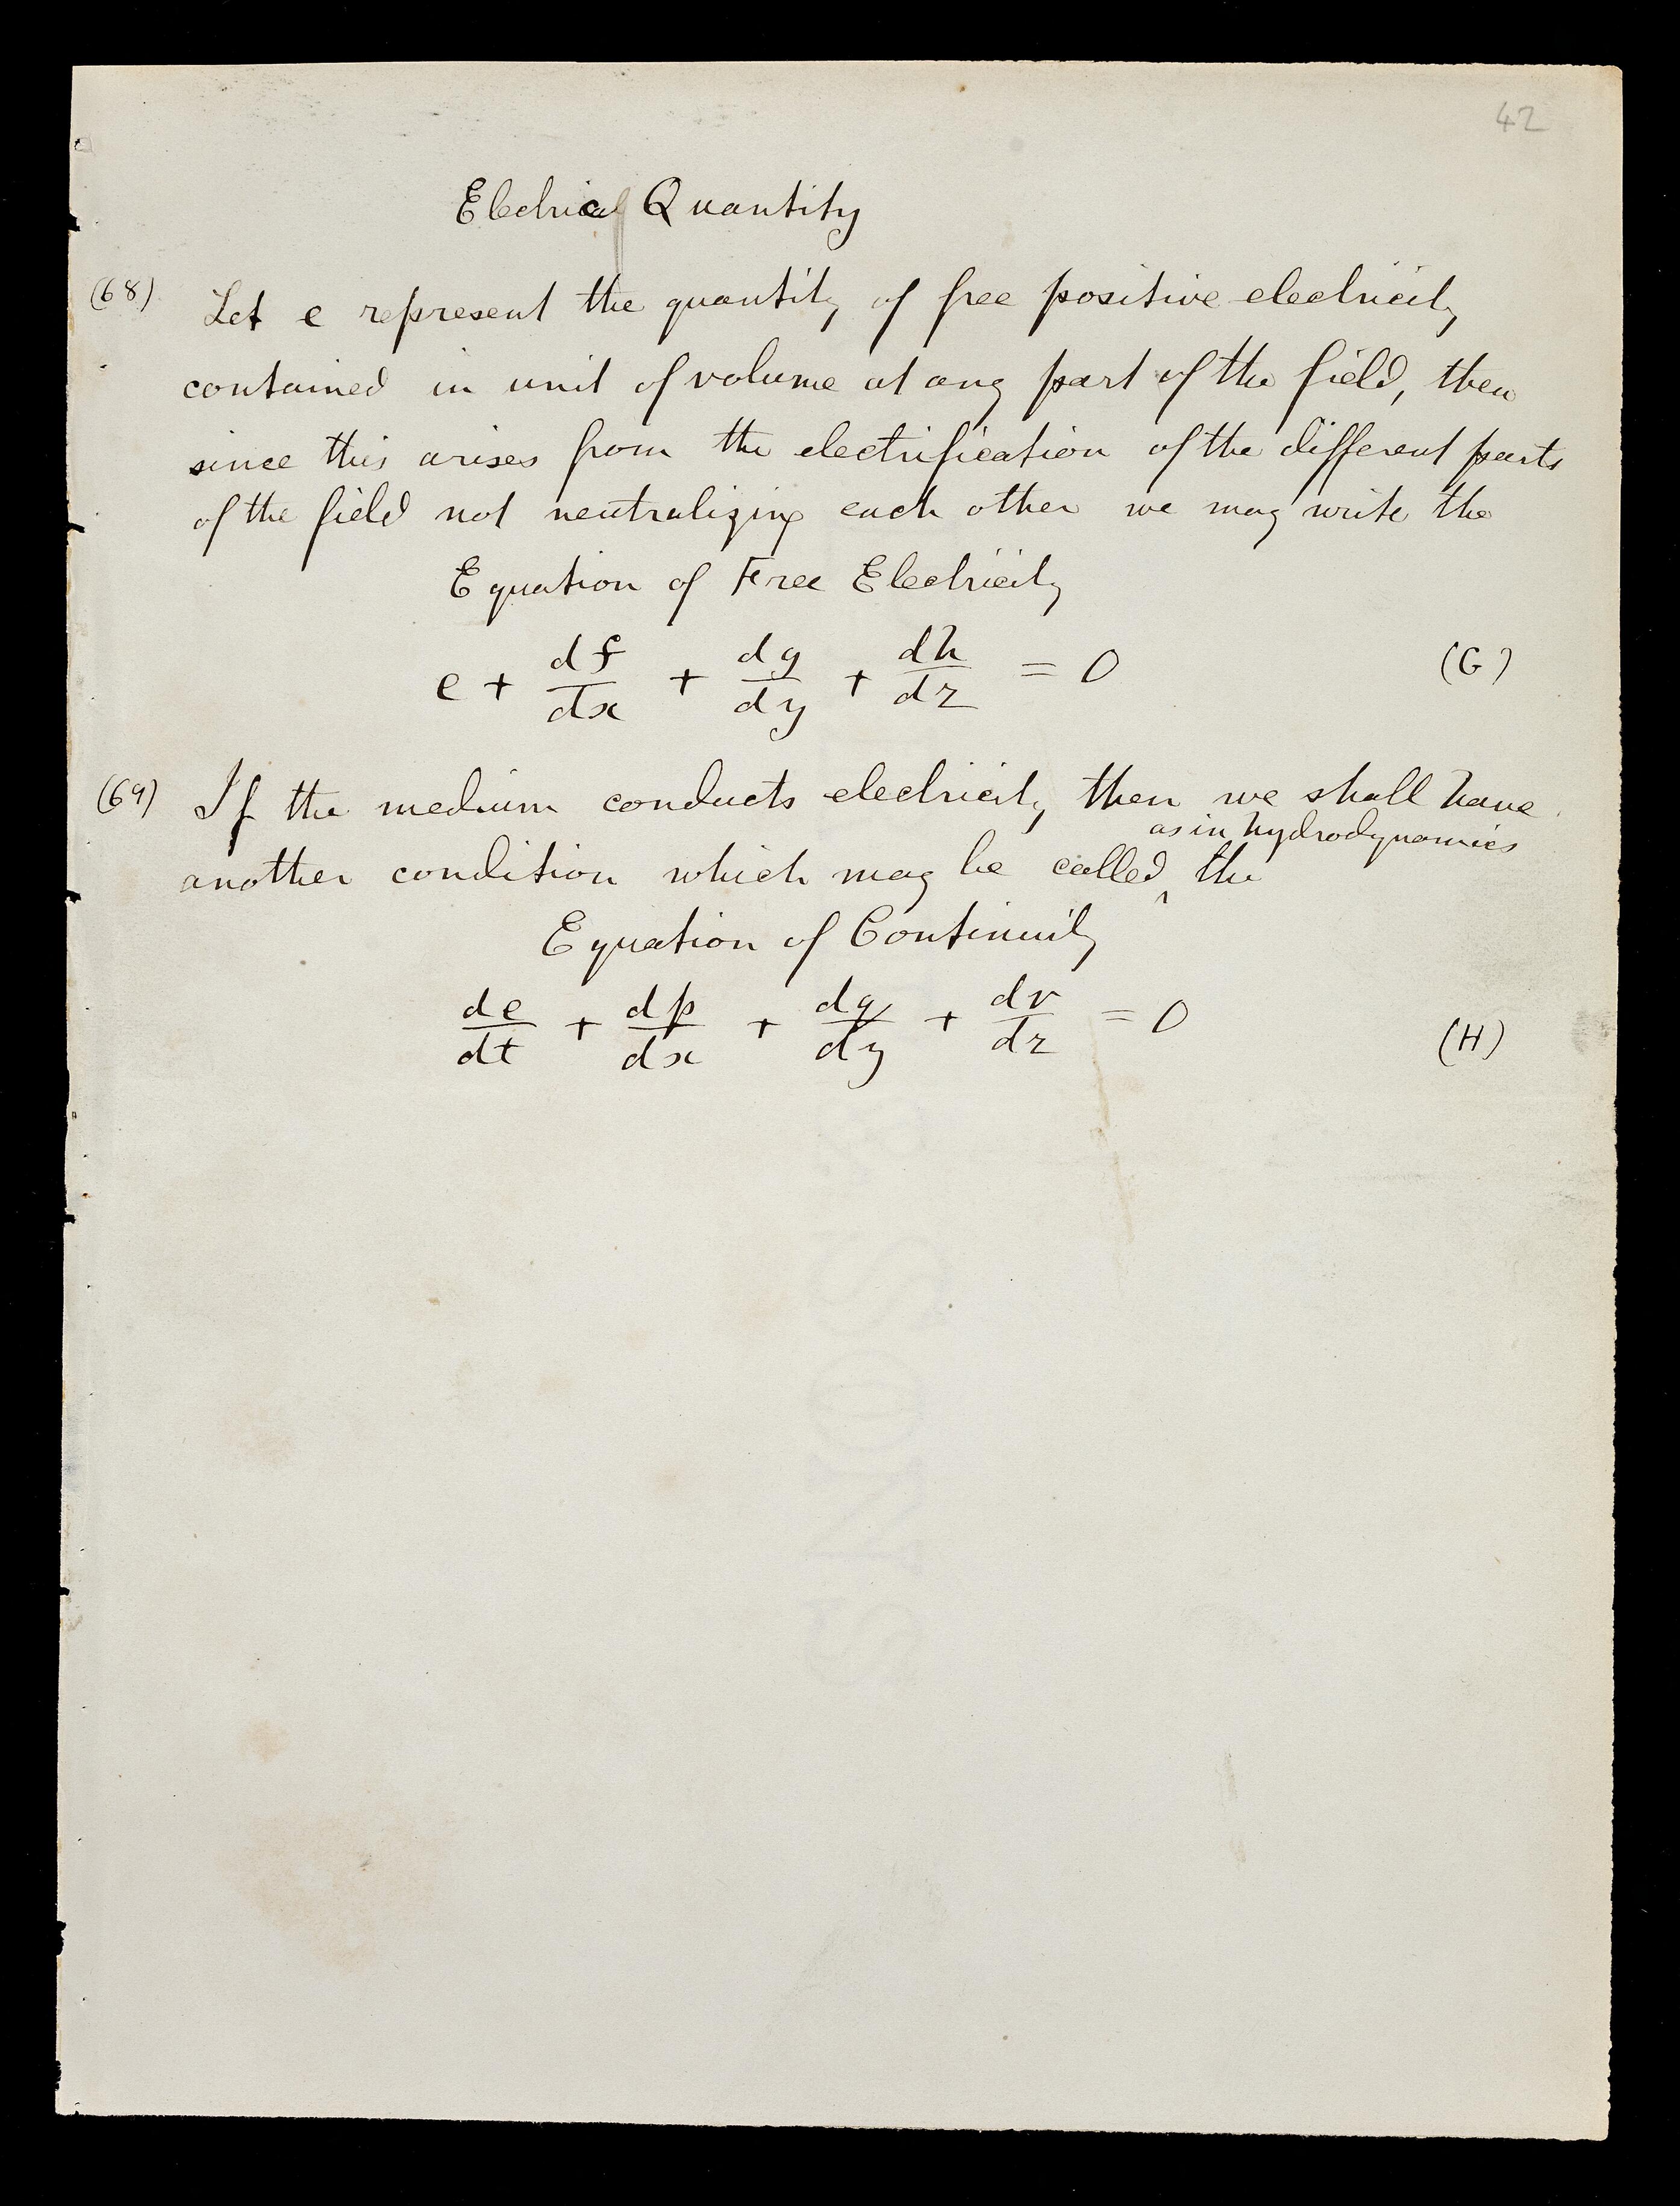 42
Electric Quantity
(68) Let e represent the quantity of free positive electricity
contained in unit of volume at any part of the field, then
since this arises from the electrification of the different parts
of the field not neutralizing each other we may write the
Equation of Free Electricity
e + df/dx + dg/dy + dh/dz = 0 (G)
(69) If the medium conducts electricity then we shall have
as in hydrodynamics
another condition which may be called ‸ the
Equation of Continuity
de/dt + dp/dx + dq/dy + dr/dz = 0 (H)